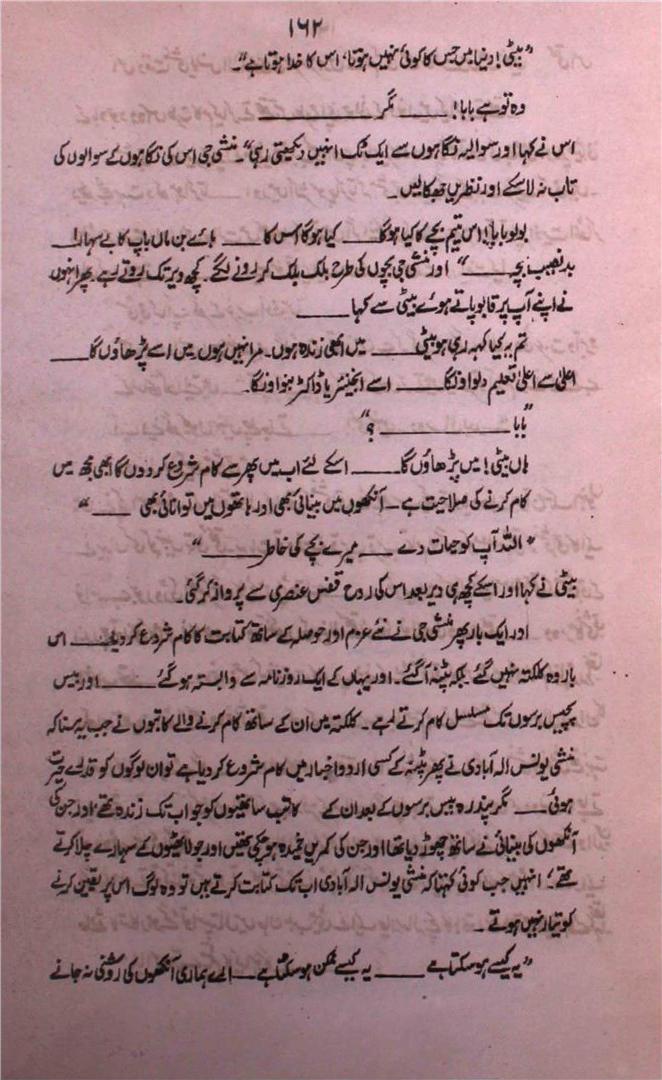 ۱۶۲
"بیٹی! دنیا میں جس کا کوئی نہیں ہوتا، اس کا خدا ہوتا ہے"۔
وہ تو ہے بابا! ____ مگر ____
اس نے کہا اور سوالیہ نگاہوں سے ایک ٹک انہیں دیکھتی رہی"۔ منشی جی اس کی نگاہوں کے سوالوں کی
تاب نہ لا سکے اور نظریں جھکا لیں۔
بولو بابا! اس یتیم بچے کا کیا ہوگا ____ کیا ہوگا اس کا ____ ہائے بن ماں باپ کا بے سہارا!
بد نصیب بچہ ____" اور منشی جی بچوں کی طرح بلک بلک کر رونے لگے۔ کچھ دیر تک روتے رہے۔ پھر انہوں
نے اپنے آپ پر قابو پاتے ہوئے بیٹی سے کہا ____
تم یہ کیا کہہ رہی ہو بیٹی ____ میں ابھی زندہ ہوں۔ مرا نہیں ہوں۔ میں اسے پڑھاؤں گا ____
اعلیٰ سے اعلیٰ تعلیم دلواؤنگا ____ اسے انجینئر یا ڈاکٹر بنواؤنگا۔
"بابا ____ ؟"
ہاں بیٹی! میں پڑھاؤں گا ____ اسکے لئے اب میں پھر سے کام شروع کر دوں گا ابھی مجھ میں
کام کرنے کی صلاحیت ہے۔ آنکھوں میں بینائی بھی اور ہاتھوں میں توانائی بھی ____"
"اللہ آپ کو حیات دے ____ میرے بچے کی خاطر ____"
بیٹی نے کہا اور اسکے کچھ ہی دیر بعد اس کی روح قفس عنصری سے پرواز کر گئی۔
اور ایک بار پھر منشی جی نے نئے عزم اور حوصلہ کے ساتھ کتابت کا کام شروع کر دیا ____ اس
بار وہ کلکتہ نہیں گئے بلکہ پٹنہ آ گئے۔ اور یہاں کے ایک روزنامہ سے وابستہ ہو گئے ____ اور بیس
پچیس برسوں تک مسلسل کام کرتے رہے۔ کلکتہ میں ان کے ساتھ کام کرنے والے کاتبوں نے جب یہ سنا کہ
منشی یونس الہ آبادی نے پھر پٹنہ کے کسی اردو اخبار میں کام شروع کر دیا ہے تو ان لوگوں کو قدرے حیرت
ہوئی ____ مگر پندرہ بیس برسوں کے بعد ان کے کاتب ساتھیوں کو جو اب تک زندہ تھے، اور جن کی
آنکھوں کی بینائی نے ساتھ چھوڑ دیا تھا اور جن کی کمریں خمیدہ ہو چکی تھیں اور جو لاٹھیوں کے سہارے چلا کرتے
تھے! انہیں جب کوئی کہتا کہ منشی یونس الہ آبادی اب تک کتابت کرتے ہیں تو وہ لوگ اس پر یقین کرنے
کو تیار نہیں ہوتے۔
"یہ کیسے ہو سکتا ہے ____ یہ کیسے ممکن ہو سکتا ہے ____ ارے ہماری آنکھوں کی روشنی نہ جانے